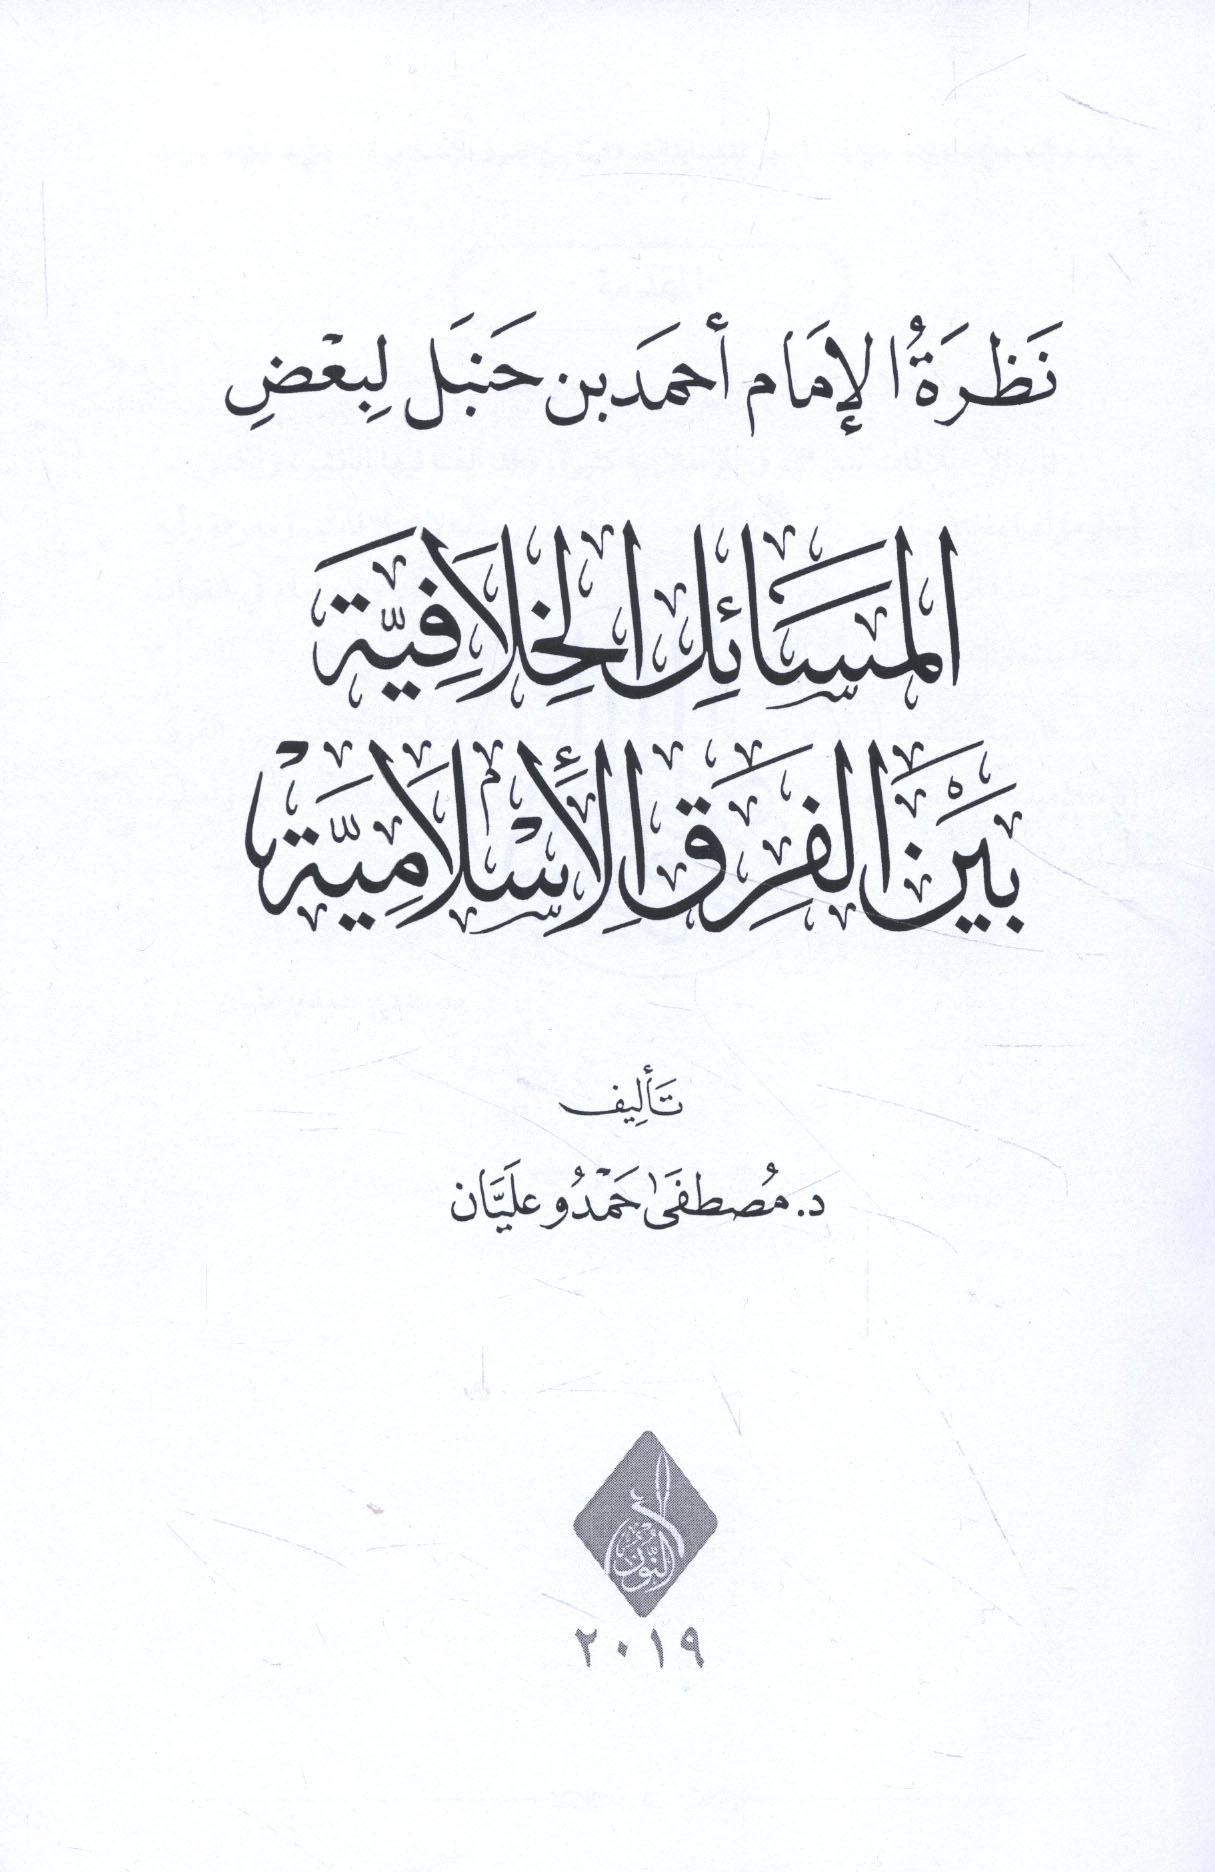 نَظرَةُ الإمَام أحمَد بن حَنبَل لِبعْضِ
المسَائِل الخِلَافِيَّة
بَيْن الفِرَق الإسْلَامِيَّة
تَأليف
د. مُصطفَىٰ حَمْدُو عليَّان
النُّور
٢٠١٩